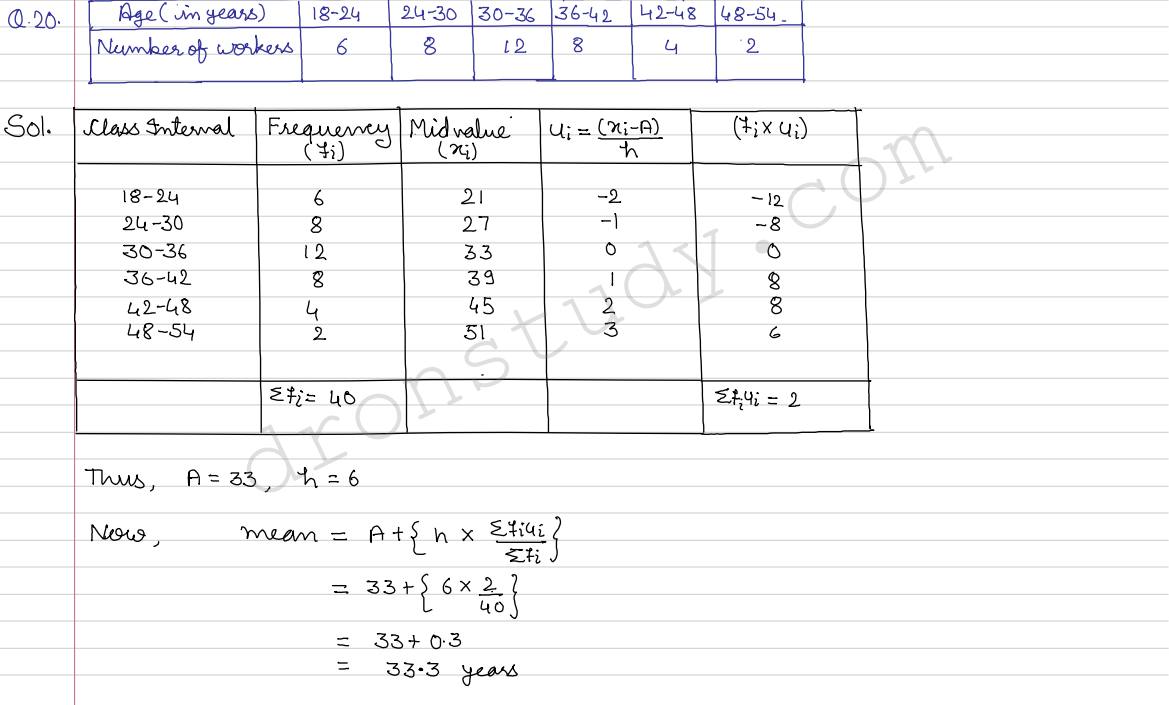 Q.20. Age (in years) 18-24 24-30 30-36 36-42 42-48 48-54
Number of workers 6 8 12 8 4 2
Sol. Class Interval Frequency (fi) Mid value (xi) ui = (xi-A)/h (fi x ui)
18-24 6 21 -2 -12
24-30 8 27 -1 -8
30-36 12 33 0 0
36-42 8 39 1 8
42-48 4 45 2 8
48-54 2 51 3 6
Σfi = 40 Σfiui = 2
Thus, A = 33, h = 6
Now, mean = A+{h x Σfiui/Σfi}
= 33+{6 x 2/40}
= 33+0.3
= 33.3 years
dronstudy.com